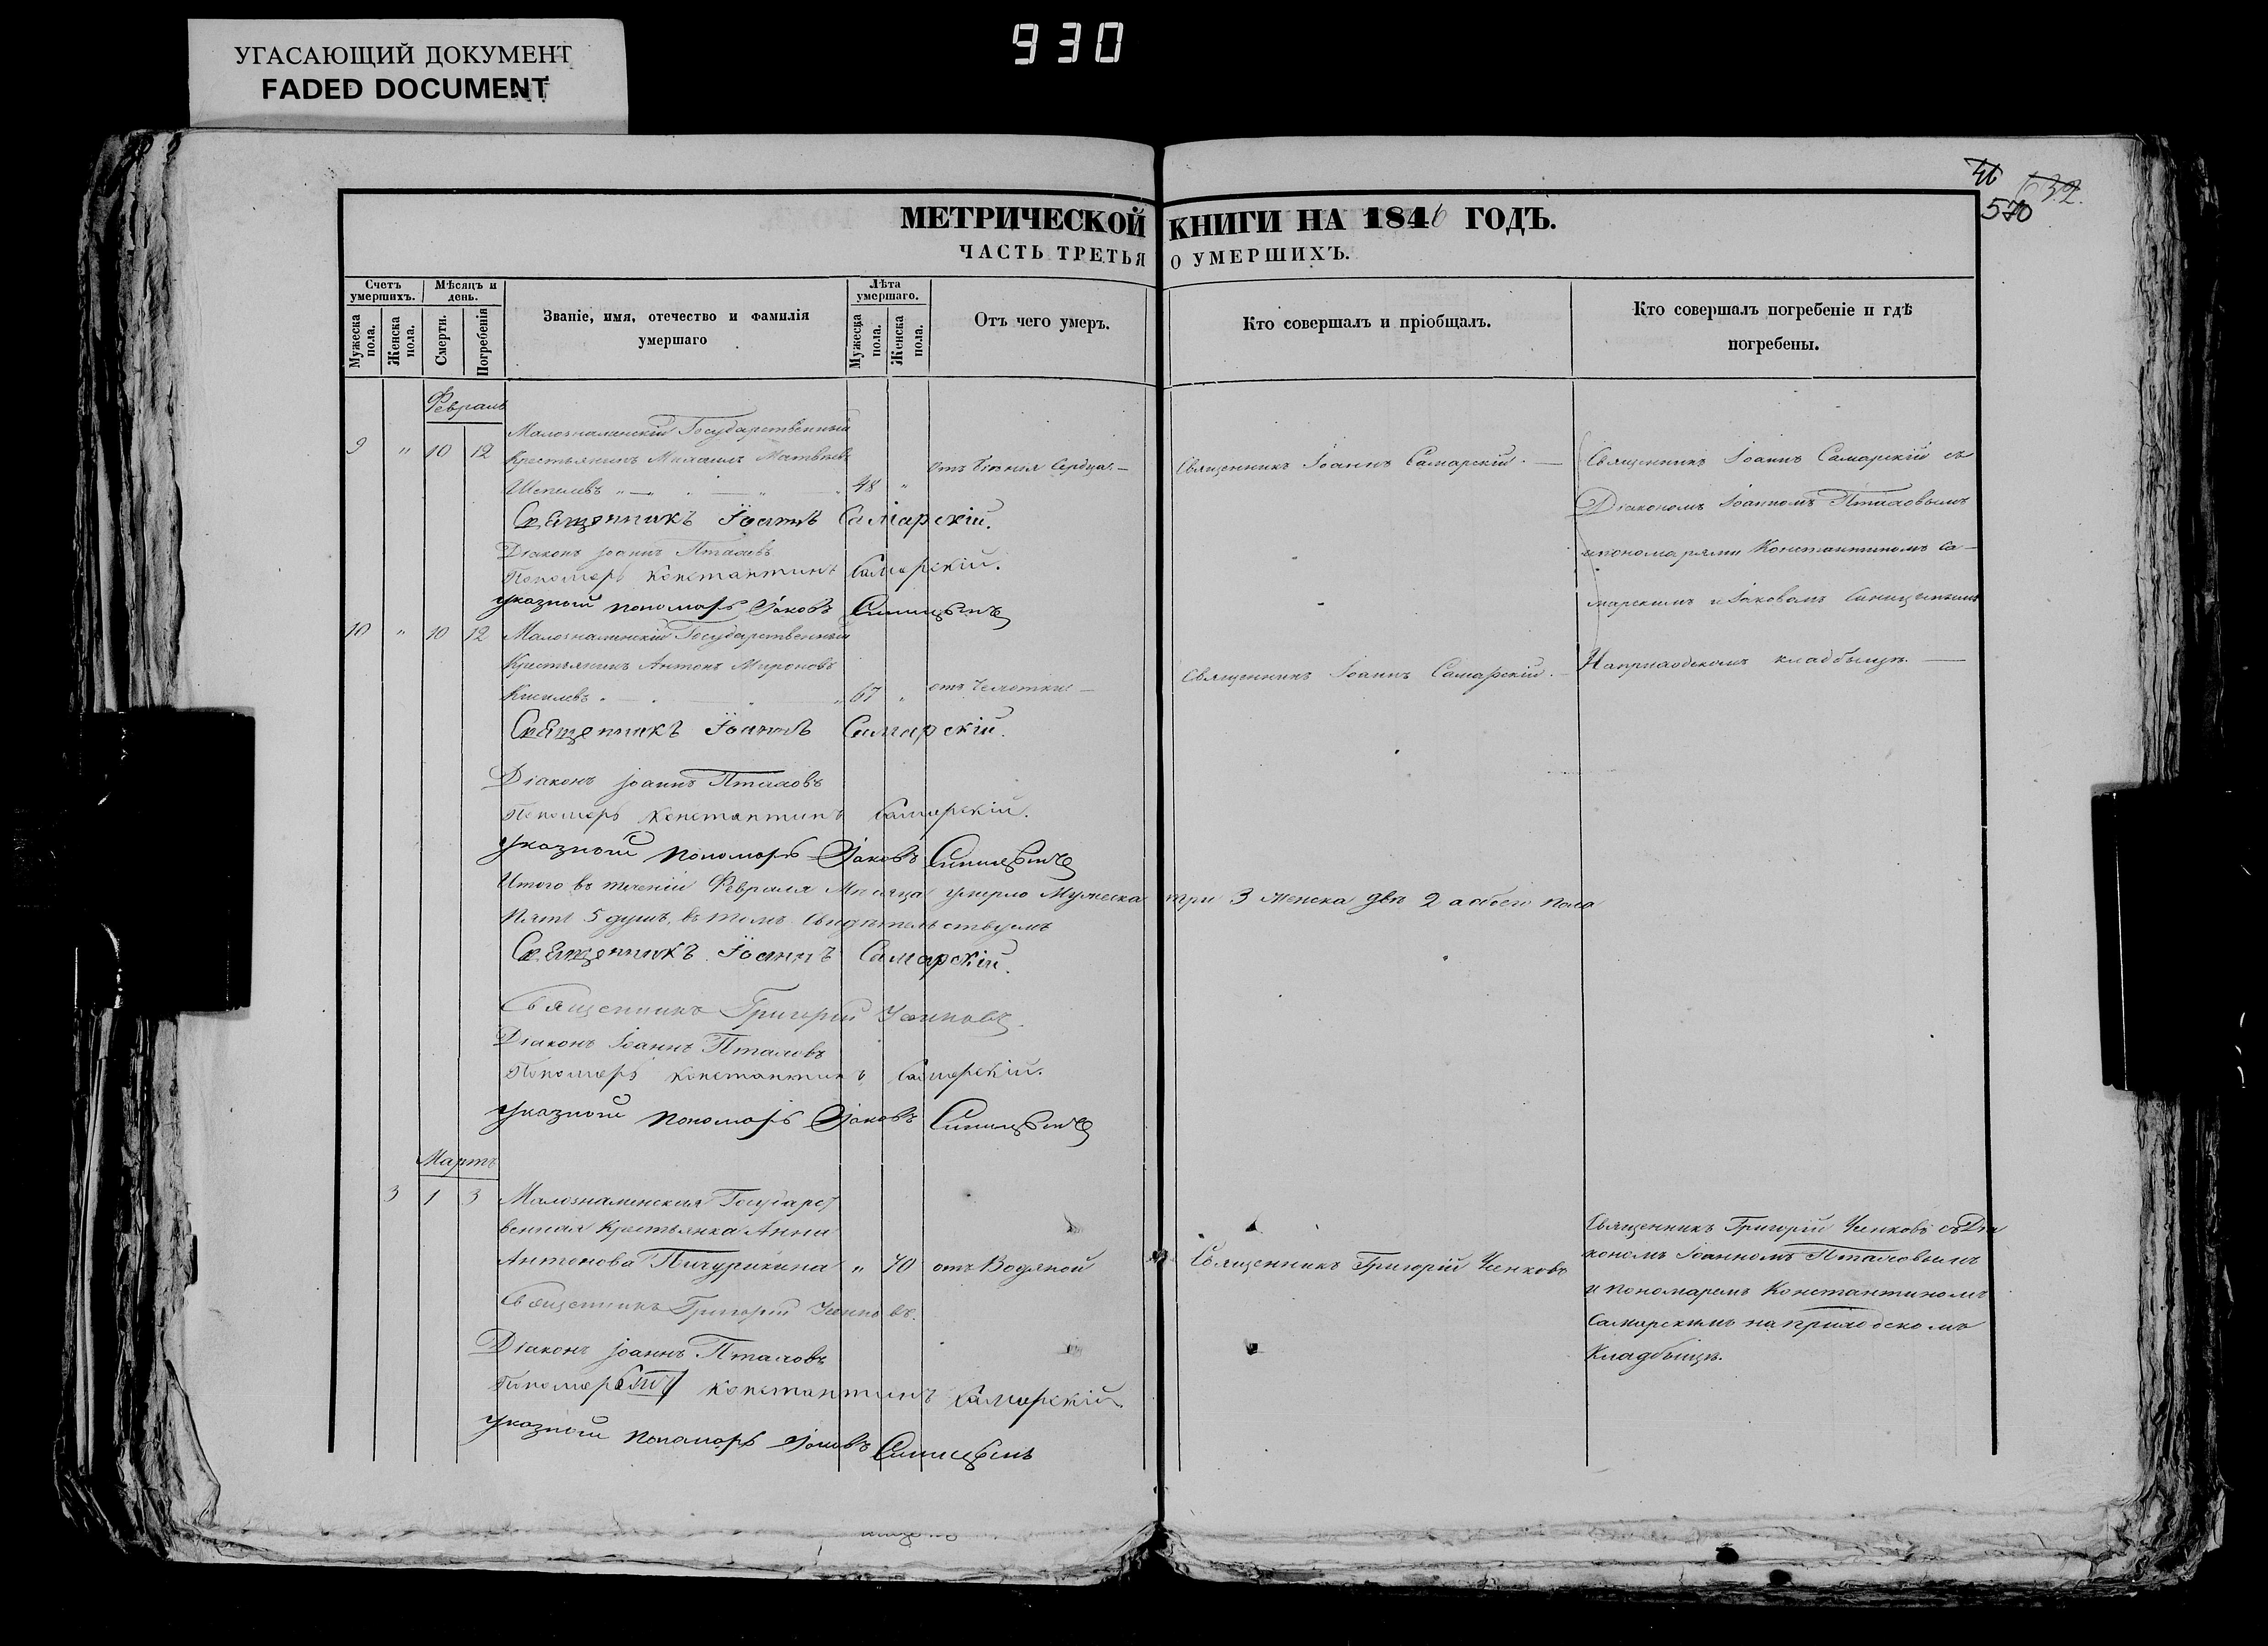 УГАСАЮЩИЙ ДОКУМЕНТ
FADED DOCUMENT
930
46
632.
570
МЕТРИЧЕСКОЙ КНИГИ НА 1846 ГОДЪ.
ЧАСТЬ ТРЕТЬЯ О УМЕРШИХЪ.
Счетъ умершихъ.
Мужеска пола.
Женска пола.
Мѣсяцъ и день.
Смерти.
Погребенія
Званіе, имя, отечество и фамилія умершаго
Лѣта умершаго.
Мужеска пола.
Женска пола.
Отъ чего умеръ.
Кто совершалъ и пріобщалъ.
Кто совершалъ погребеніе и гдѣ погребены.
Февраль
9 " 10 12
Малознаменскій Государственный
Крестьянинъ Михаилъ Матвѣевъ
Шепелевъ 48 "
отъ біенія сердца
Священникъ Іоаннъ Самарскій.
Священникъ Іоаннъ Самарскій съ
Діакономъ Іоанномъ Пталовымъ
и пономарями Константиномъ Са-
марскимъ и Іаковомъ Синицынымъ
На приходскомъ кладбищѣ.
Священникъ Іоаннъ Самарскій.
Діаконъ Іоаннъ Пталовъ
Пономарь Константинъ Самарскій.
указной пономарь Іаковъ Синицынъ
10 " 10 12
Малознаменскій Государственный
Крестьянинъ Антонъ Мироновъ
Киселевъ 67 "
отъ чахотки
Священникъ Іоаннъ Самарскій.
Священникъ Іоаннъ Самарскій.
Діаконъ Іоаннъ Пталовъ
Пономарь Константинъ Самарскій.
указной пономарь Іаковъ Синицынъ
Итого въ теченіи Февраля Мѣсяца умерло Мужеска три 3 женска двѣ 2 а обоего пола
пять 5 душъ, въ томъ свидѣтельствуемъ
Священникъ Іоаннъ Самарскій.
Священникъ Григорій
Діаконъ Іоаннъ Пталовъ
Пономарь Константинъ Самарскій.
указной пономарь Іаковъ Синицынъ
Мартъ
3 1 3
Малознаменская Государст
венная Крестьянка Анна
Антонова " 70
отъ Водяной
Священникъ Григорій
Священникъ Григорій съ Діа
кономъ Іоанномъ Пталовымъ
и пономаремъ Константиномъ
Самарскимъ на приходскомъ
Кладбищѣ.
Священникъ Григорій
Діаконъ Іоаннъ Пталовъ
Пономарь Константинъ Самарскій
указной пономарь Іаковъ Синицынъ